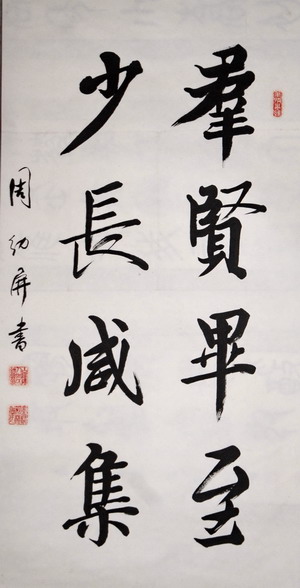 羣賢畢至
少長咸集
周幼屏書